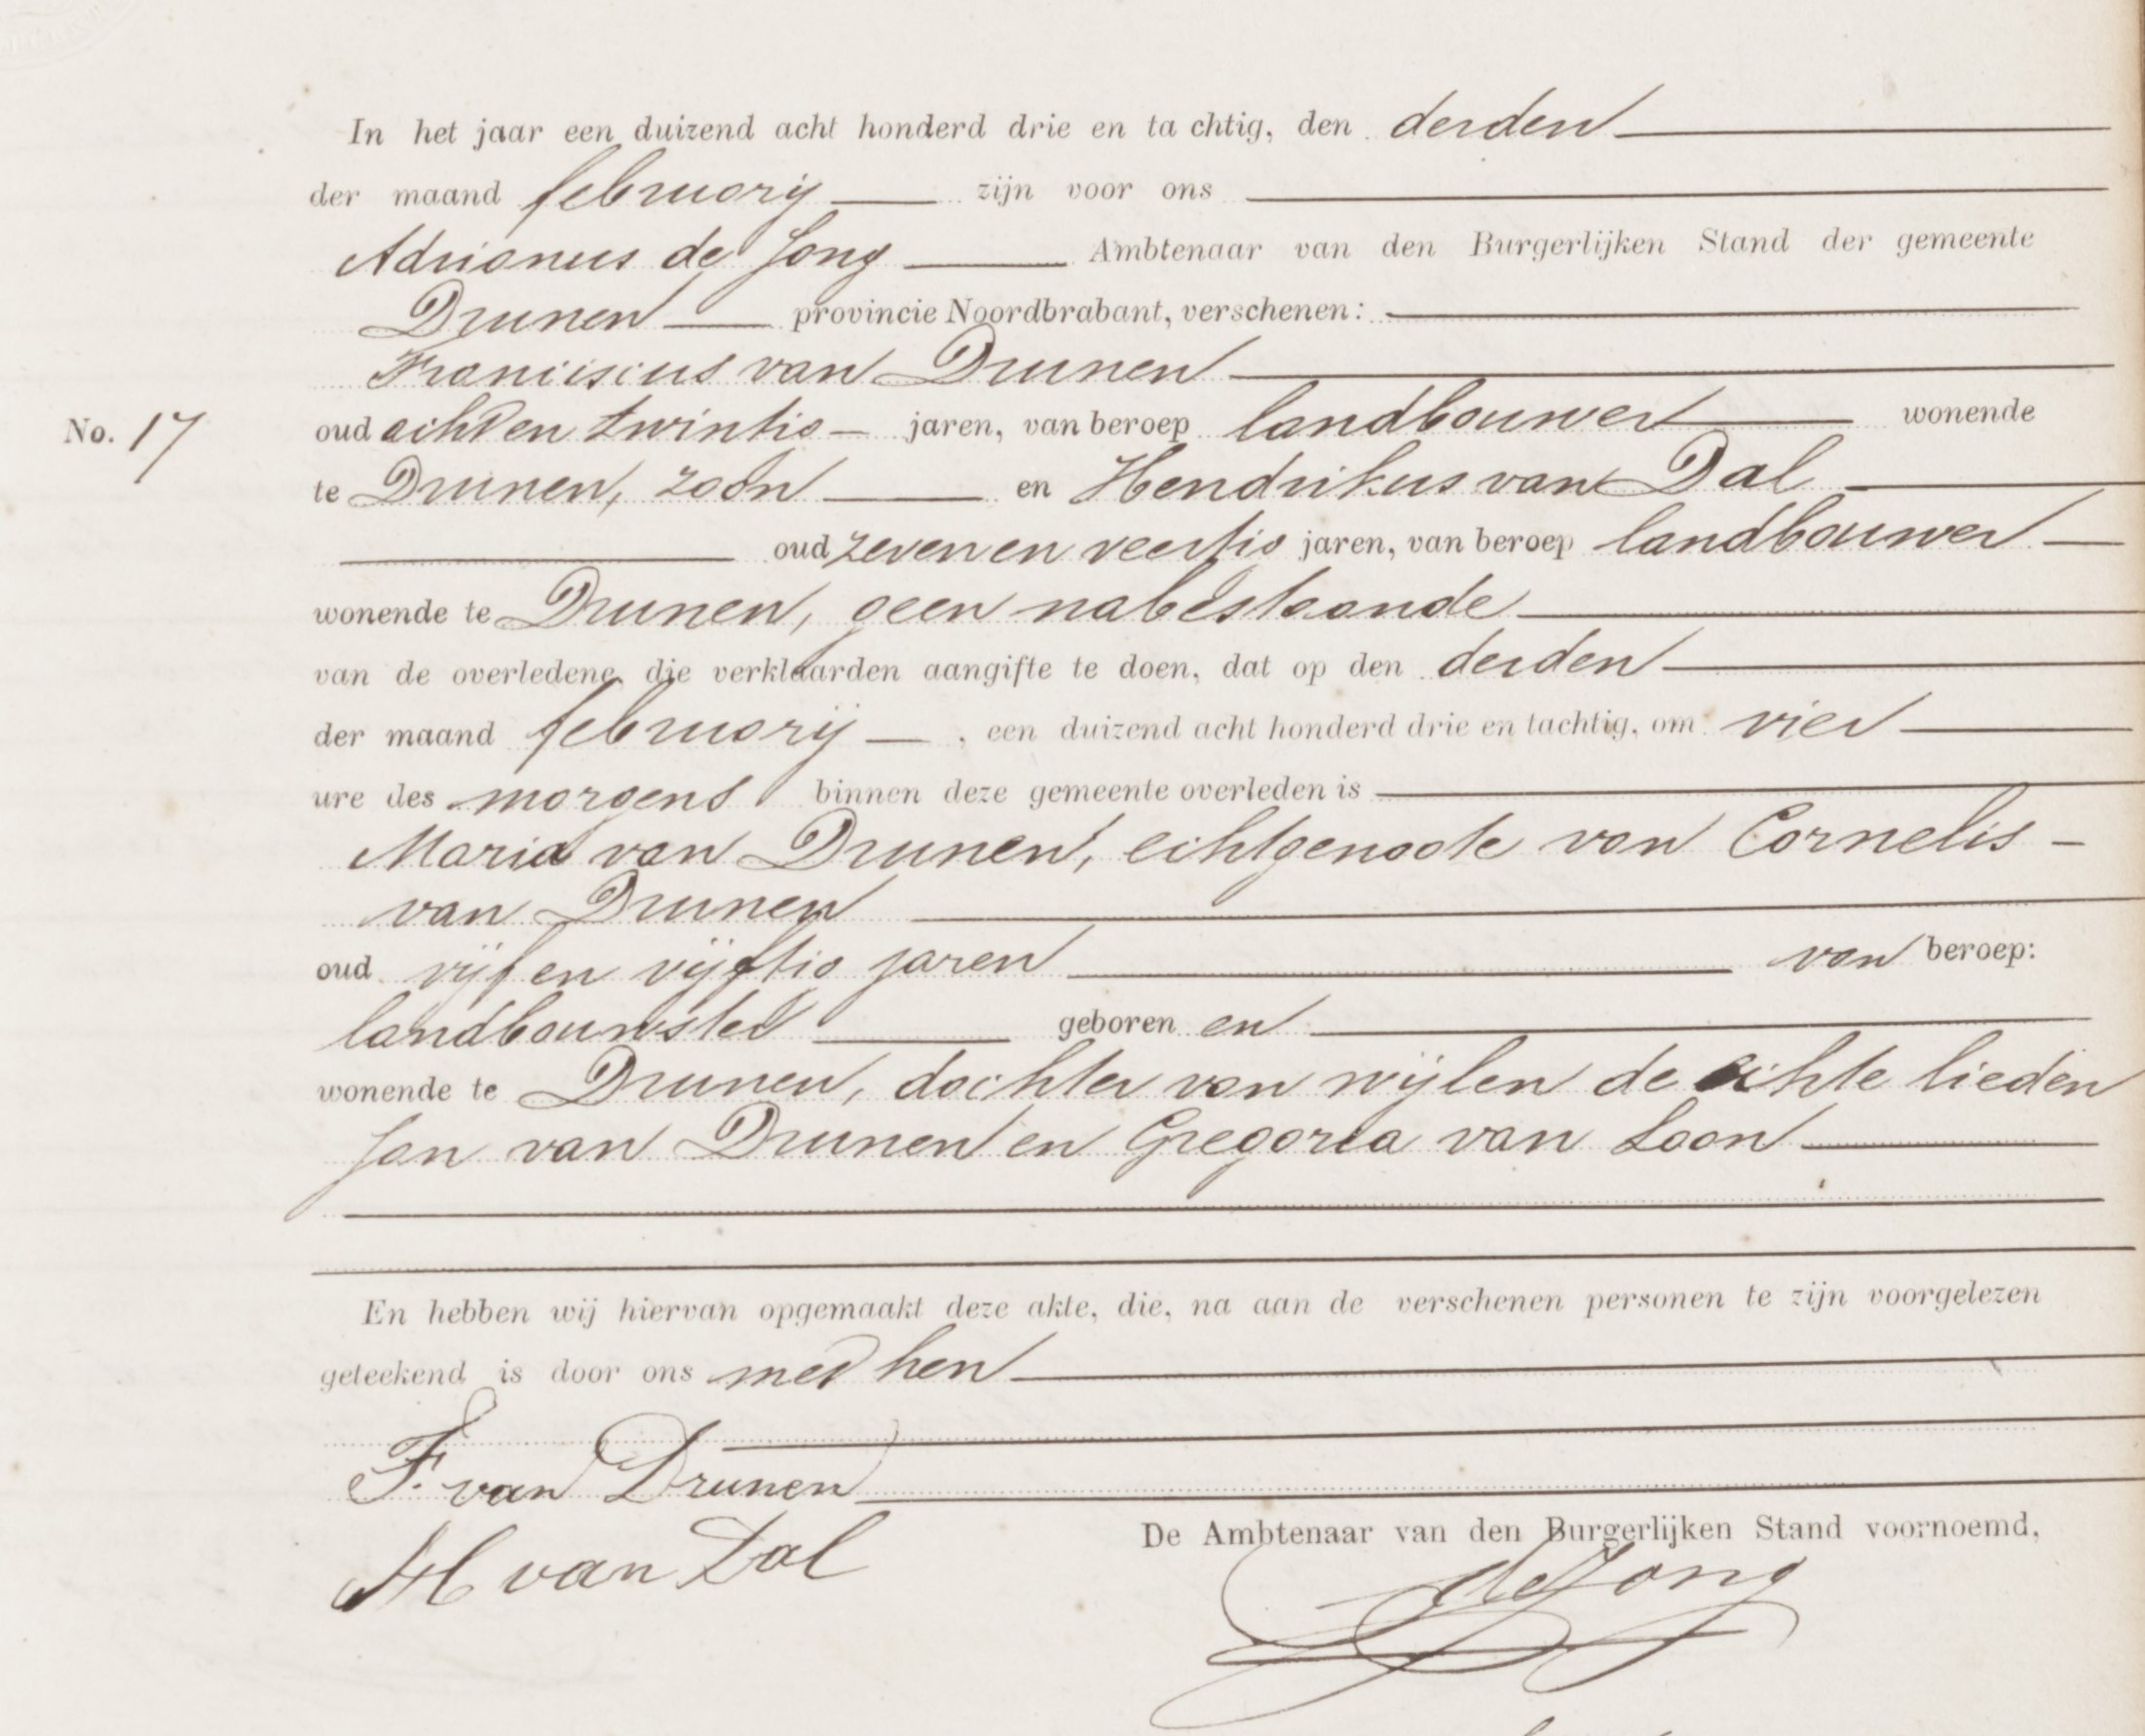 In het jaar een duizend acht honderd drie en tachtig, den derden
der maand februarij zijn voor ons
Adrianus de Jong Ambtenaar van den Burgerlijken Stand der gemeente
Drunen provincie Noordbrabant, verschenen:
Franciscus van Drunen
No. 17 oud acht en twintig jaren, van beroep landbouwer wonende
te Drunen, zoon en Hendrikus van Dal
oud zeven en veertig jaren, van beroep landbouwer
wonende te Drunen, geen nabestaande
van de overledene, die verklaarden aangifte te doen, dat op den derden
der maand februarij, een duizend acht honderd drie en tachtig, om vier
ure des morgens binnen deze gemeente overleden is
Maria van Drunen, echtgenoote van Cornelis
van Drunen
oud vijf en vijftig jaren van beroep:
landbouwster geboren en
wonende te Drunen, dochter van wijlen de echte lieden
Jan van Drunen en Gregoria van Loon
En hebben wij hiervan opgemaakt deze akte, die, na aan de verschenen personen te zijn voorgelezen
geteekend is door ons met hen
F. van Drunen
H van Dal
De Ambtenaar van den Burgerlijken Stand voornoemd,
de Jong